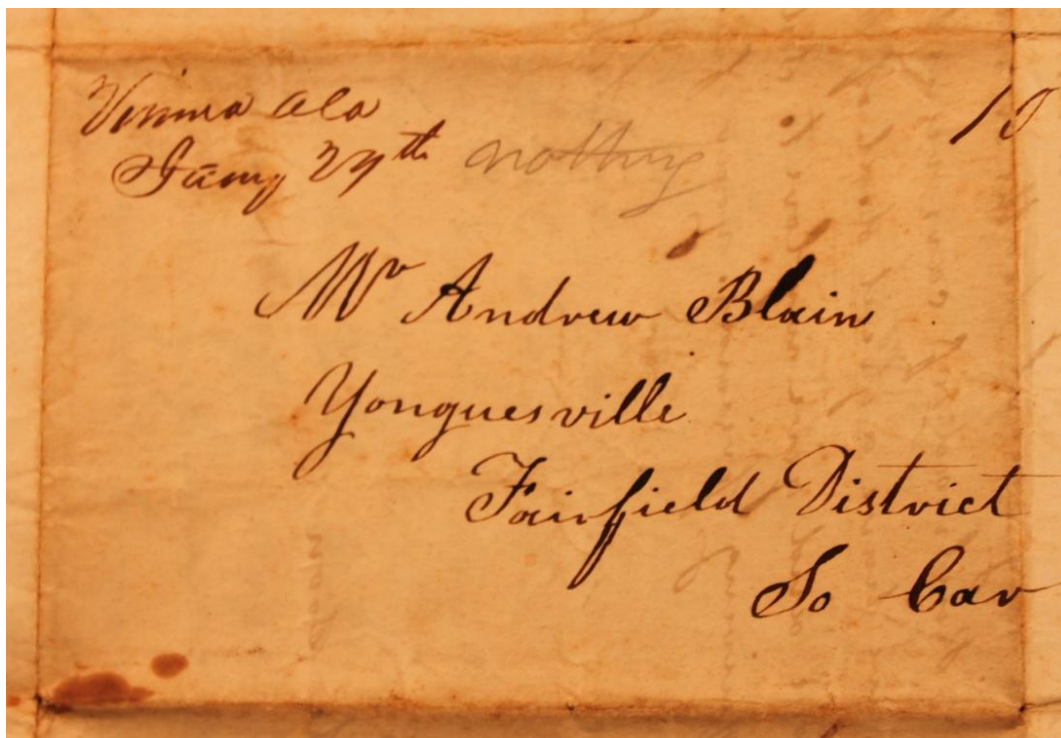 Vienna Ala
Jany 29th nothing 10
Mr Andrew Blain
Yonguesville
Fairfield District
So Car